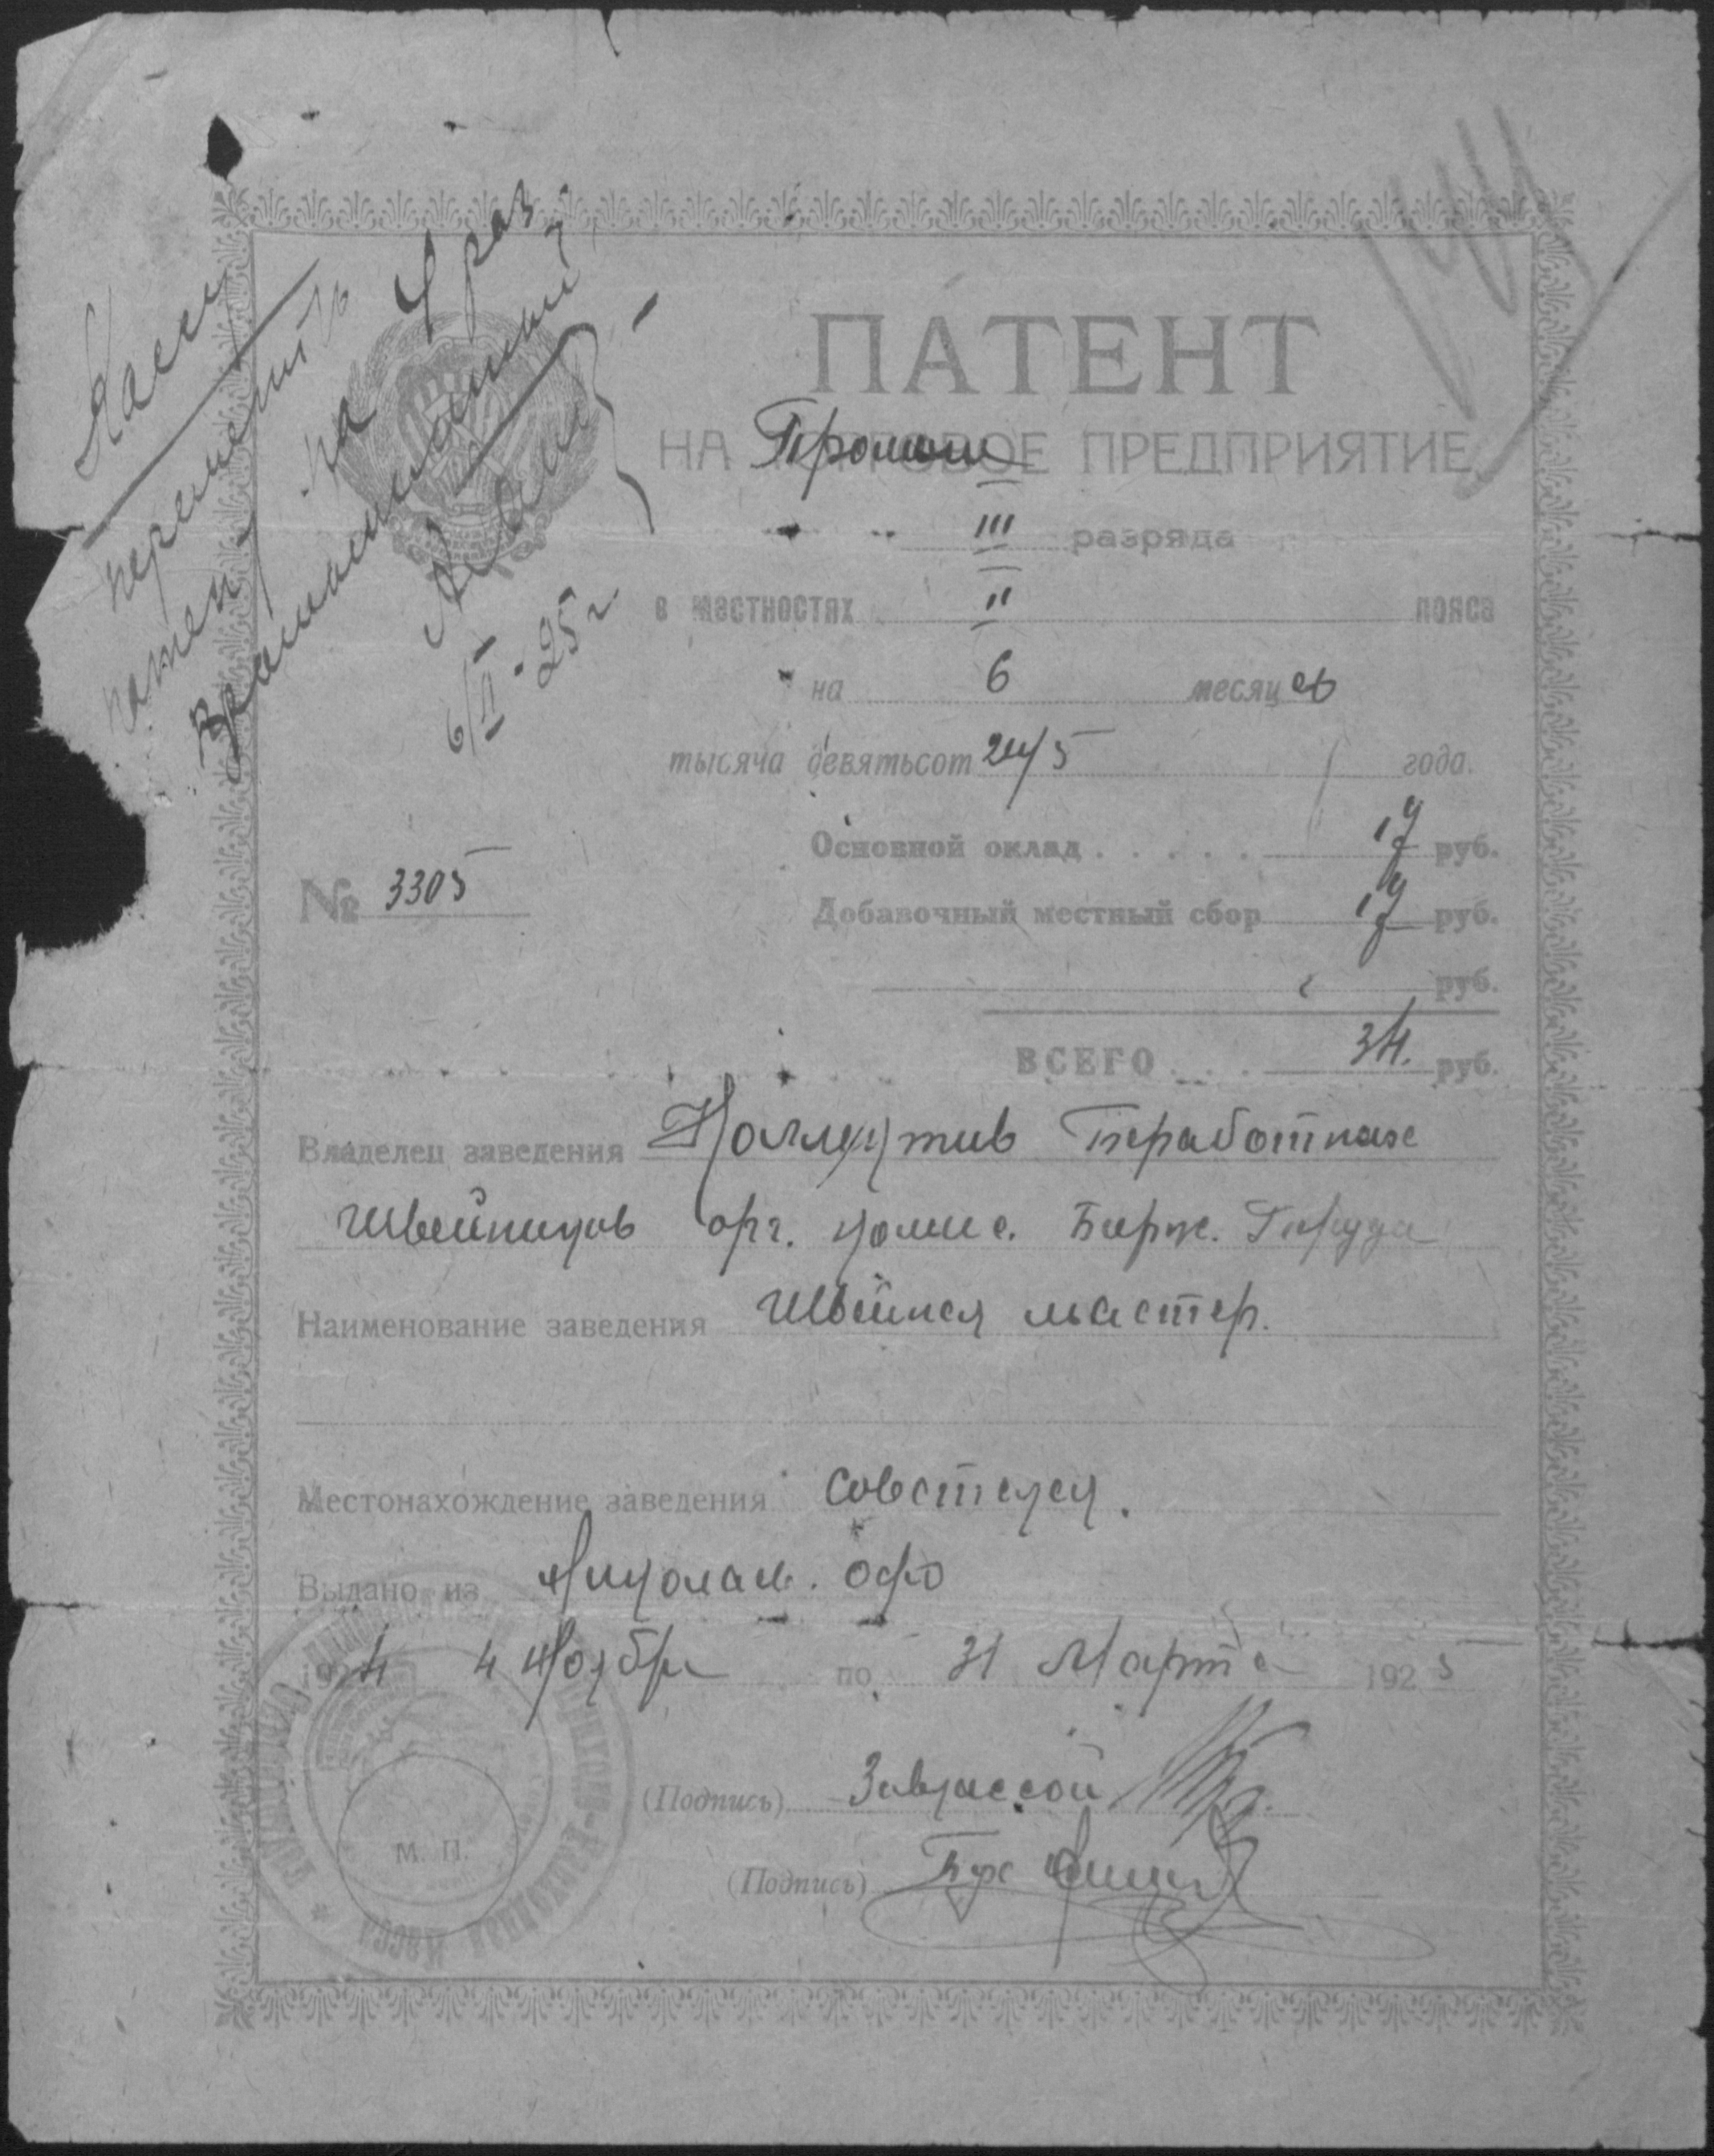 Кассу
переменить
патент на 4 раз.
6/II-25 г
ПАТЕНТ
НА Промыш ТОРГОВОЕ ПРЕДПРИЯТИЕ
III разряда
в местностях II пояса
на 6 месяцев
тысяча девятьсот 24/5 года.
Основной оклад . . . . . 17 руб.
№ 3305
Добавочный местный сбор 17 руб.
руб.
ВСЕГО . . . 34. руб.
Владелец заведения Коллектив Безработных
Швейников орг. комис. Бирж. Труда
Наименование заведения Швейная мастер.
Местонахождение заведения Советская.
Выдано из Николаев. ОФО
1924 4 Ноября по 31 Марта 1925
(Подпись) Завкассой
(Подпись) Бух
М. П.